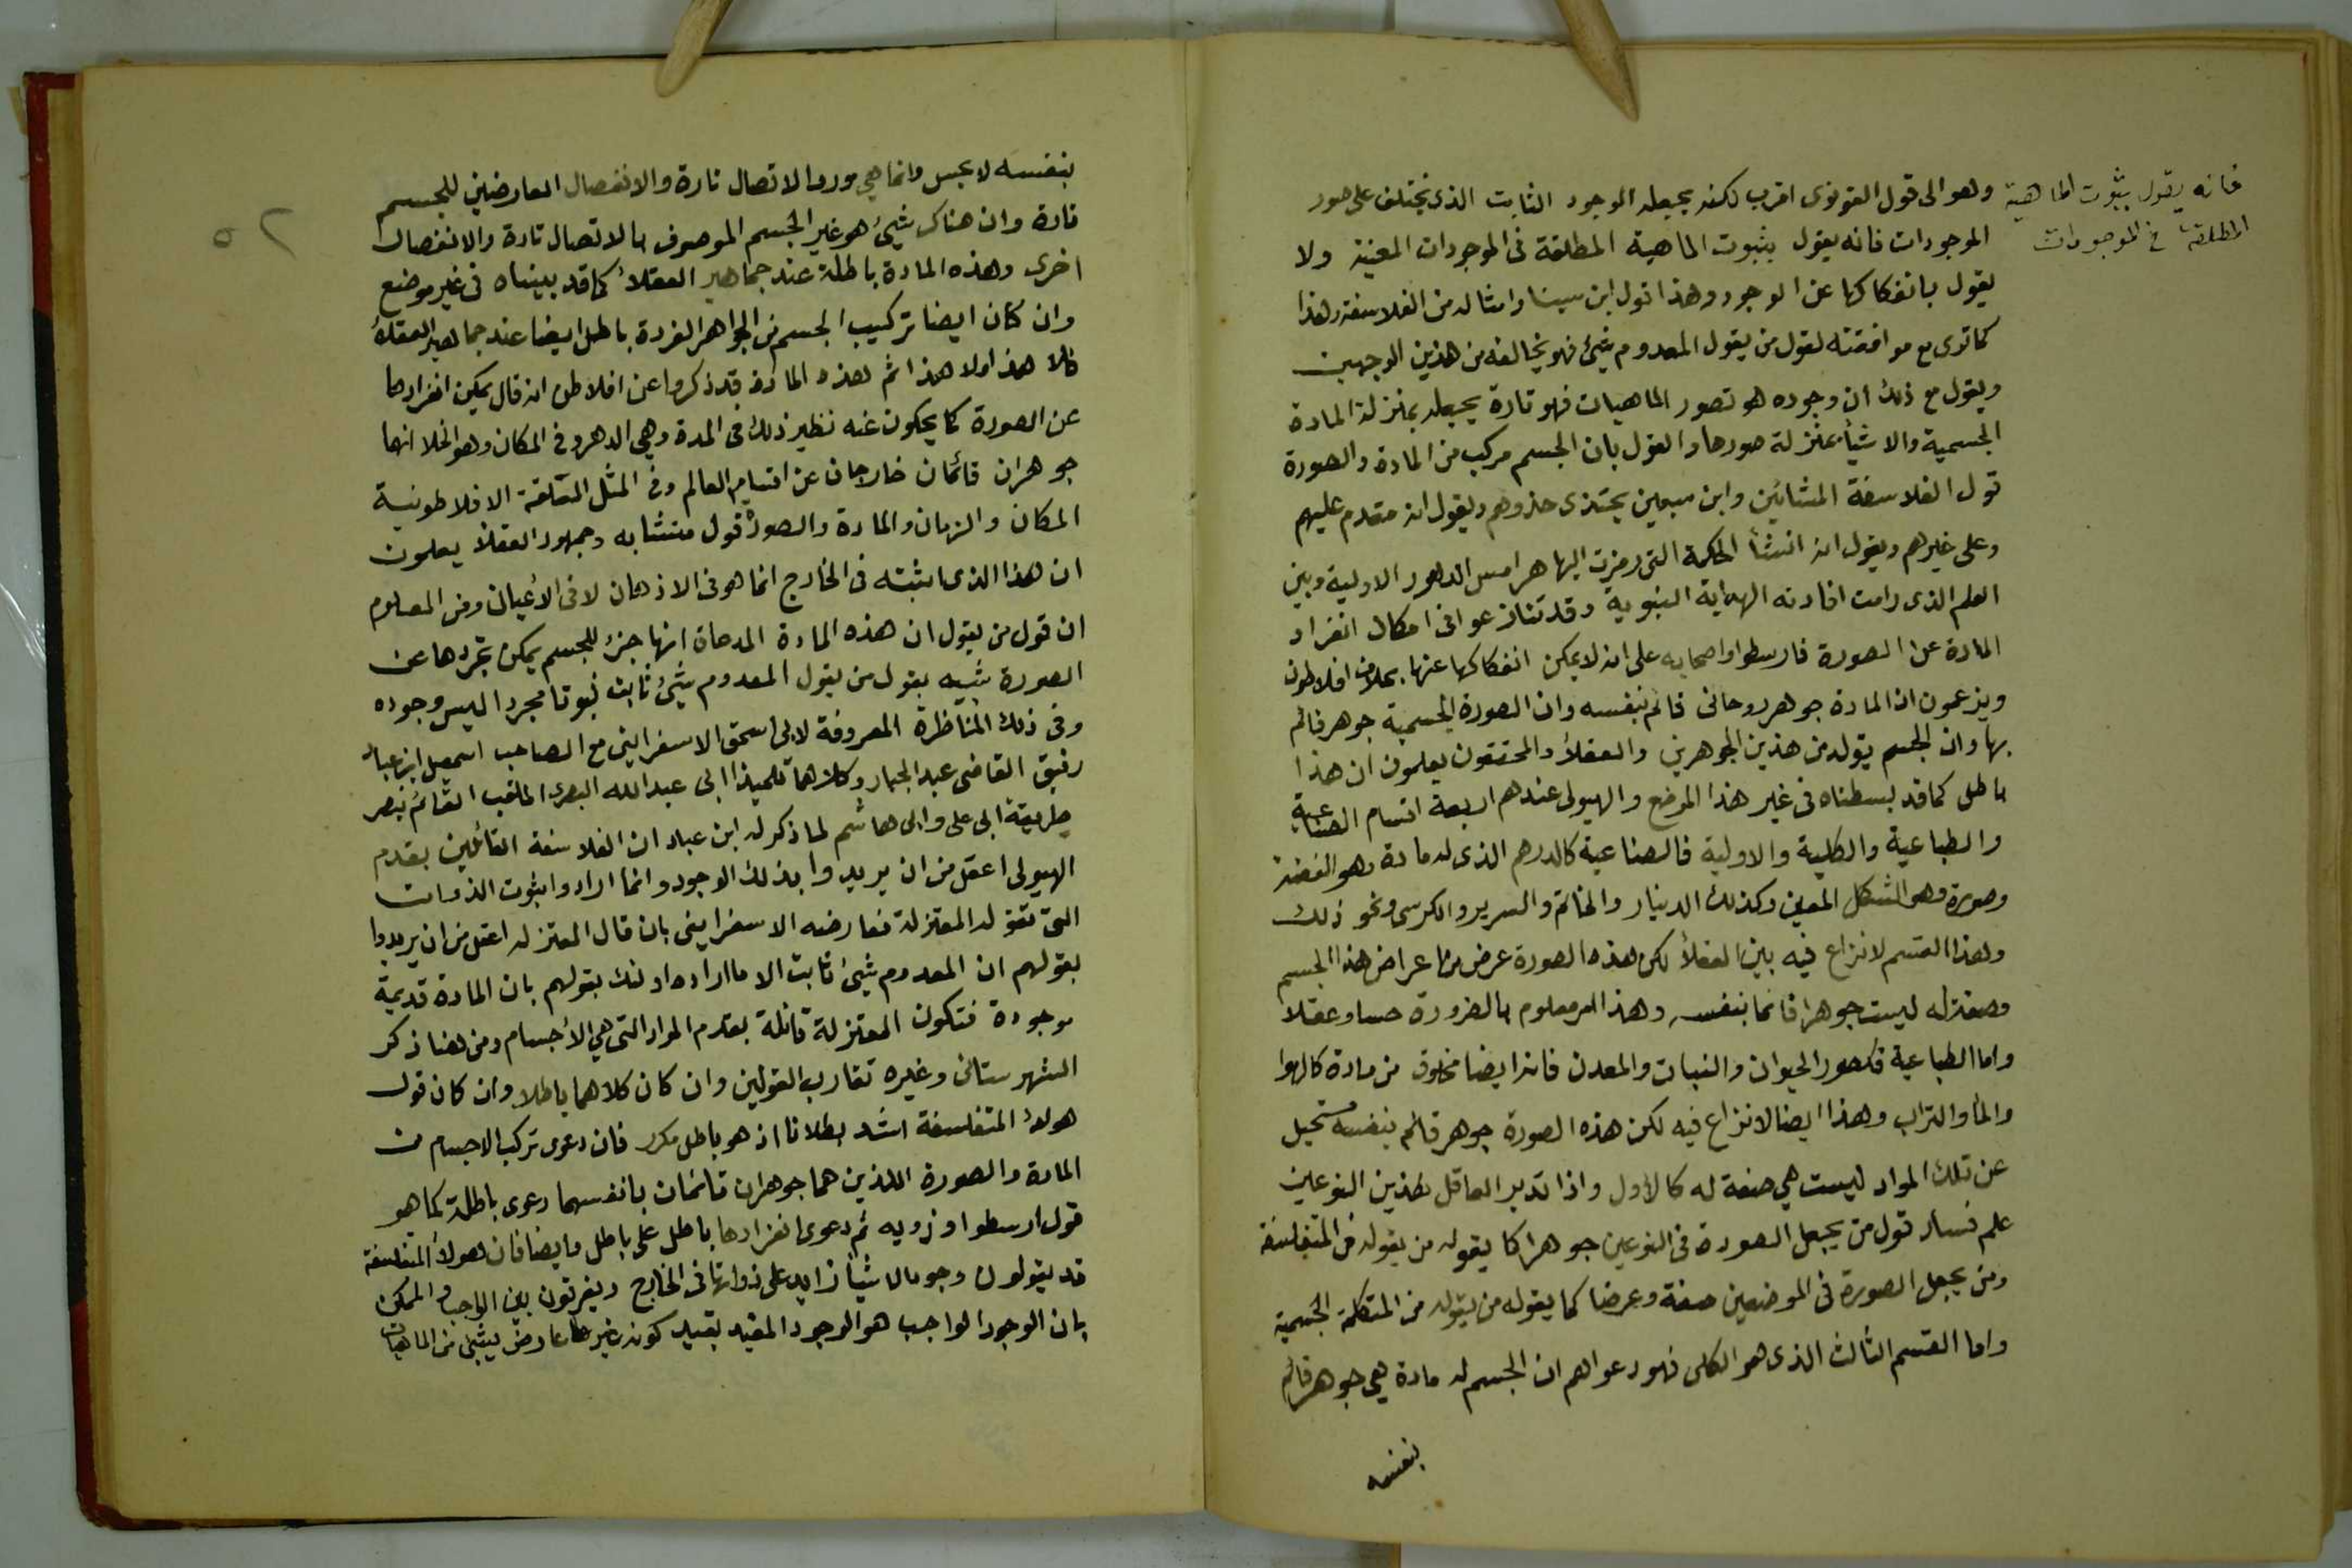 وهو الى قول القونوى اقرب لكنه يجعله الوجود الثابت الذى يختلف على صور
الموجودات فانه يقول بثبوت الماهية المطلقة فى الموجودات المعينة ولا
يقول بانفكاكها عن الوجود وهذا قول ابن سينا وامثاله من الفلاسفة وهذا
كما ترى مع موافقته لقول من يقول المعدوم شئ فهو يخالفه من هذين الوجهين
ويقول مع ذلك ان وجوده هو تصور الماهيات فهو تارة يجعله بمنزلة المادة
الجسمية والاشيأ بمنزلة صورها والقول بان الجسم مركب من المادة والصورة
قول الفلاسفة المشائين وابن سبعين يحتذى حذوهم ويقول انه متقدم عليهم
وعلى غيرهم ويقول انه انشأ الحكمة التى رمزت اليها هرامس الدهور الاولية وبين
العلم الذى رامت افادته الهداية النبوية وقد تنازعوا فى امكان انفراد
المادة عن الصورة فارسطوا واصحابه على انه لا يمكن انفكاكها عنها بخلاف افلاطون
ويزعمون ان المادة جوهر روحانى قائم بنفسه وان الصورة الجسمية جوهر قائم
بها وان الجسم يتولد من هذين الجوهرين والعقلأ والمحققون يعلمون ان هذا
باطل كما قد بسطناه فى غير هذا الموضع والهيولى عندهم اربعة اقسام الصناعية
والطباعية والكلية والاولية فالصناعية كالدرهم الذى له مادة وهو الفضة
وصورة وهى الشكل المعين وكذلك الدينار والخاتم والسرير والكرسى ونحو ذلك
وهذا القسم لا نزاع فيه بين العقلأ لكن هذه الصورة عرض من اعراض هذا الجسم
وصفة له ليست جوهرا قائما بنفسه وهذا امر معلوم بالضرورة حسا وعقلا
واما الطباعية فكصور الحيوان والنبات والمعدن فانه ايضا مخلوق من مادة كالهوا
والمأ والتراب وهذا ايضا لا نزاع فيه لكن هذه الصورة جوهر قائم بنفسه مستحيل
عن تلك المواد ليست هي صفة له كالأول واذا تدبر العاقل هذين النوعين
علم فساد قول من يجعل الصورة فى النوعين جوهرا كما يقوله من يقوله من المتفلسفة
ومن يجعل الصورة فى الموضعين صفة وعرضا كما يقوله من يقوله من المتكلمة الجسمية
واما القسم الثالث الذى هو الكلى فهو دعواهم ان الجسم له مادة هي جوهر قائم
بنفسه
فانه يقول بثبوت الماهية
المطلقة فى الموجودات
٥٢
بنفسه لا يحس وانما هي مورد الاتصال تارة والانفصال العارضين للجسم
تارة وان هناك شئ هو غير الجسم الموصوف بالاتصال تارة والانفصال
اخرى وهذه المادة باطلة عند جماهير العقلأ كما قد بيناه فى غير موضع
وان كان ايضا تركيب الجسم من الجواهر الفردة باطل ايضا عند جماهير العقلأ
فلا هذا ولا هذا ثم هذه المادة قد ذكروا عن افلاطن انه قال يمكن انفرادها
عن الصورة كما يحكون عنه نظير ذلك فى المدة وهي الدهر وفى المكان وهو الخلا انهما
جوهران قائمان خارجان عن اقسام العالم وفى المثل المعلقة الافلاطونية
المكان والزمان والمادة والصورة قول متشابه وجمهور العقلأ يعلمون
ان هذا الذى اثبته فى الخارج انما هو فى الاذهان لا فى الأعيان ومن المعلوم
ان قول من يقول ان هذه المادة المدعاة انها جزء للجسم يمكن تجردها عن
الصورة شبيه بقول من يقول المعدوم شئ ثابت ثبوتا مجردا ليس وجوده
وفى ذلك المناظرة المعروفة لابى اسحق الاسفراينى مع الصاحب اسمعيل ابن عباد
رفيق القاضى عبد الجبار وكلاهما تلميذا ابى عبد الله البصرى الملقب القائم بنصر
طريقة ابى على وابى هاشم لما ذكر له ابن عباد ان الفلاسفة القائلين بقدم
الهيولى اعقل من ان يريدوا بذلك الوجود وانما ارادوا ثبوت الذوات
التى تقوله المعتزلة فعارضه الاسفراينى بان قال المعتزله اعقل من ان يريدوا
بقولهم ان المعدوم شئ ثابت الا ما اراده اولئك بقولهم بان المادة قديمة
موجودة فتكون المعتزلة قائلة بقدم المواد التى هي الأجسام ومن هنا ذكر
الشهرستانى وغيره تقارب القولين وان كان كلاهما باطلا وان كان قول
هولأ المتفلسفة اشد بطلانا اذ هو باطل مكرر فان دعوى تركب الاجسام من
المادة والصورة اللذين هما جوهران قائمان بانفسهما دعوى باطلة كما هو
قول ارسطوا وزويه ثم دعوى انفرادها باطل على باطل وايضا فان هولأ المتفلسفة
قد يقولون وجود الاشيأ زايد على ذواتها فى الخارج ويفرقون بين الواجب والممكن
بان الوجود الواجب هو الوجود المقيد بقيد كونه غير عارض لشئ من الماهيات